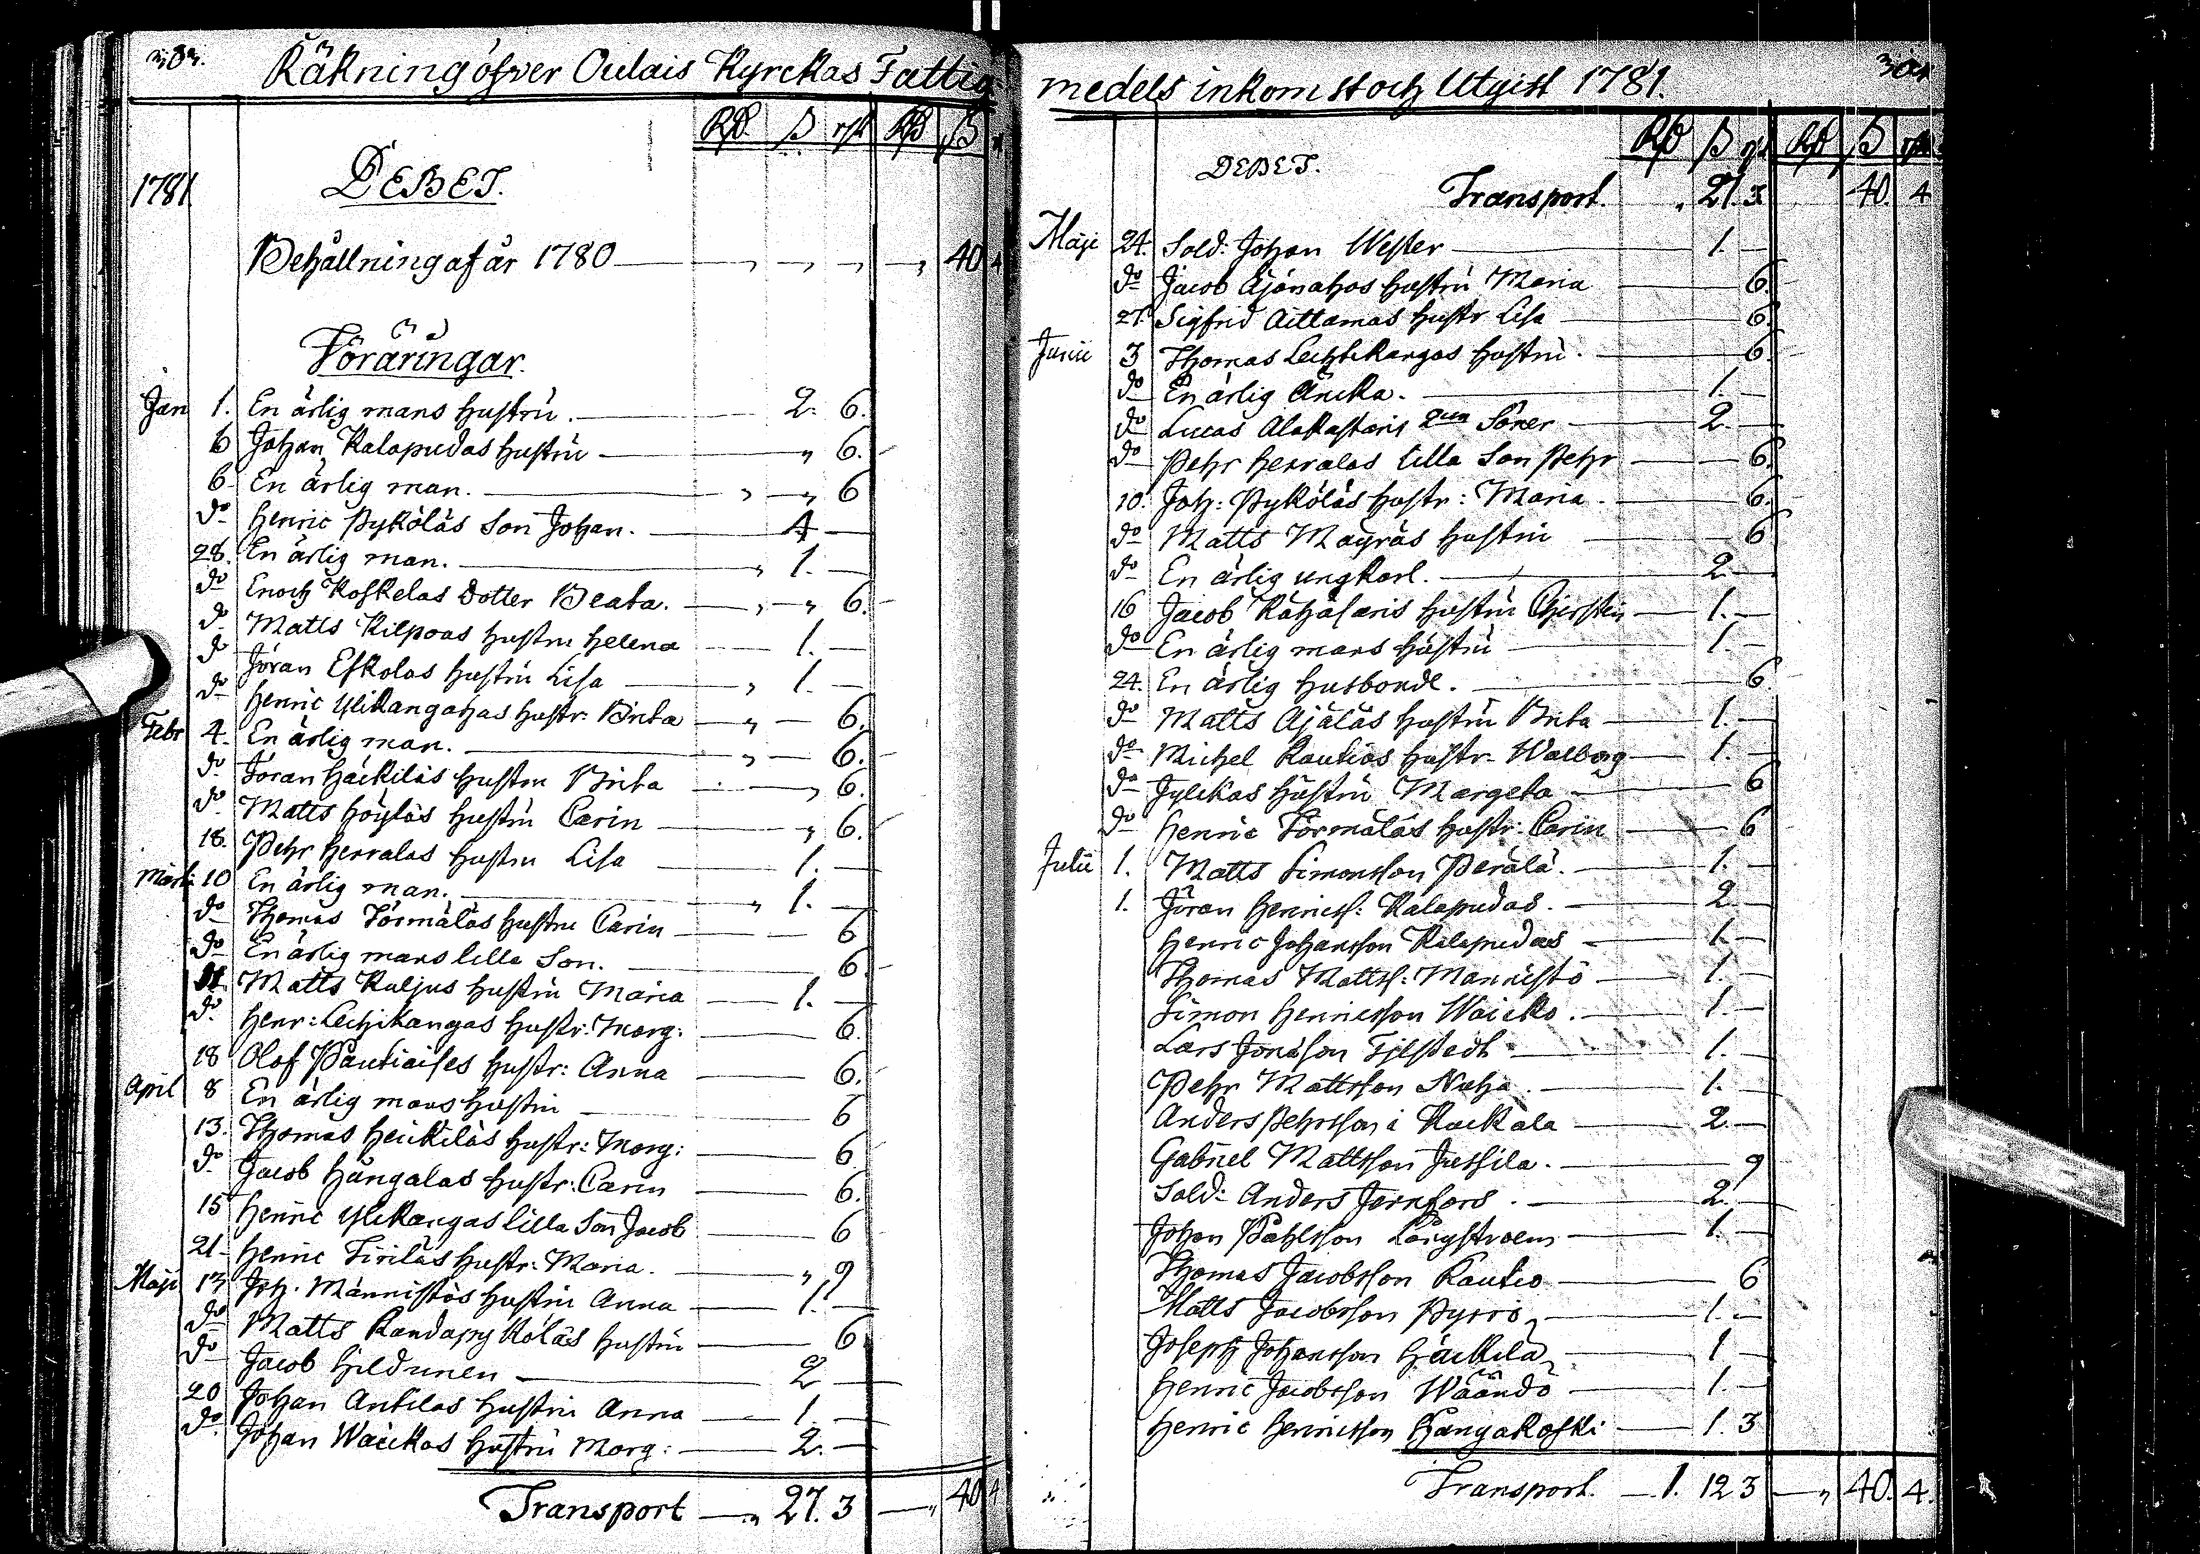 303.
Räkning öfver Oulais Kyrckas Fattig
Rd ß rst Rd ß
1781
DEBET.
Behållning af år 1780 40 4
Föräringar.
Jan 1. En ärlig mans hustru. 2. 6.
6 Johan Kalapudas hustru 6.
6 En ärlig man. 6
do Henric Pyköläs Son Johan. 4
28. En ärlig man. 1.
do Enoch Koskelas Dotter Beata. 6.
do Matts Kilpoas hustru Helena 1.
do Jöran Eskolas hustru Lisa 1.
do Henric Ylikangahas hustr: Brita 6.
Febr 4. En ärlig man. 6.
do Jöran Häckiläs hustru Brita 6.
do Matts Höyläs hustru Carin 6.
18. Pehr Herralas hustru Lisa 1.
Marti 10 En ärlig man. 1.
do Thomas Törmäläs hustru Carin 6
do En ärlig mans lilla Son. 6.
11 Matts Kuljus hustru Maria 1.
do Henr: Lechikangas hustr: Marg: 6.
18 Olof Pautiaises hustr: Anna 6.
April 8 En ärlig mans hustru 6
13. Thomas Heickiläs hustr: Marg: 6
do Jacob Hangalas hustr: Carin 6.
15 Henric Ylikangas lilla Son Jacob 6
21 Henric Tiriläs hustr: Maria. 9
Maji 13 Joh. Männistös hustru Anna 1.
do Matts Randapyköläs hustru 6
do Jacob Hildunen 2
20 Johan Antilas hustru Anna 1
do Johan Waickos hustru Marg: 2.
Transport 27. 3 40 4
medels inkomst och Utgift 1781.
Rd ß rst Rd ß rst
DEBET.
Transport. 27. 3 40. 4
Maji 24. Sold: Johan Wester 1.
do Jacob Ojanahos hustru Maria 6.
27. Sigfrid Aittamas hustr Lisa 6.
Junii 3 Thomas Lechtikangas hustru. 6.
do En ärlig Äncka. 1.
do Lucas Alakastaris 2ne Söner 2.
do Pehr Herralas lilla Son Pehr 6.
10. Joh: Pyköläs hustr: Maria. 6.
do Matts Mäyräs hustru 6
do En ärlig ungkarl. 2
16 Jacob Kähäsaris hustru Chirstin 1.
do En ärlig mans hustru 1.
24. En ärlig husbonde. 6
do Matts Ajäläs hustru Brita 1.
do Michel Rautios hustr. Walborg 1.
do Jylckas hustru Margeta 6
do Henric Törmäläs hustr: Carin 6
Julii 1. Matts Simonsson Perälä. 1.
1. Jöran Henricss: Kalapudas. 2
Henric Johansson Kalapudas 1.
Thomas Mattss: Männistö 1.
Simon Henricsson Waicko. 1.
Lars Jonsson Tilstedt 1.
Pehr Mattsson Nuha. 1.
Anders Pehrsson i Kuckala 2
Gabriel Mattsson Jussila. 9
Sold: Anders Jernfors. 2
Johan Pahlsson Långström 1.
Thomas Jacobsson Rautio 6
Matts Jacobsson Pyrrö 1.
Joseph Johansson Häckilä 1
Henric Jacobsson Wäändö 1.
Henric Henricsson Hangakoski 1. 3
Transport. 1. 12 3 40. 4.